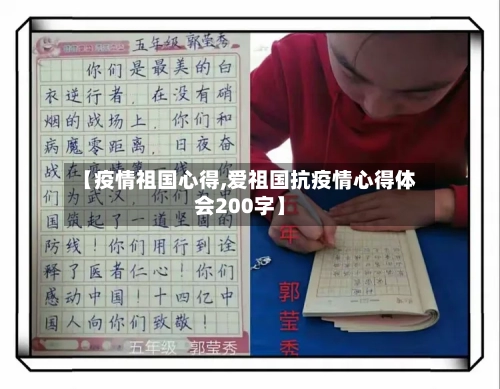 五年级 郭莹秀
你们是最美的白
衣逆行者，在没有硝
烟的战场上，你们和
病魔零距离，日夜奋
战在
们为武汉，你们
国筑起了一道坚固的
防线！你们用行到诠
释了医者仁心！你们
感动中国！十四亿中
国人向你们致敬！
五年级 郭莹秀
【疫情祖国心得,爱祖国抗疫情心得体
会200字】
年
郭
莹
秀